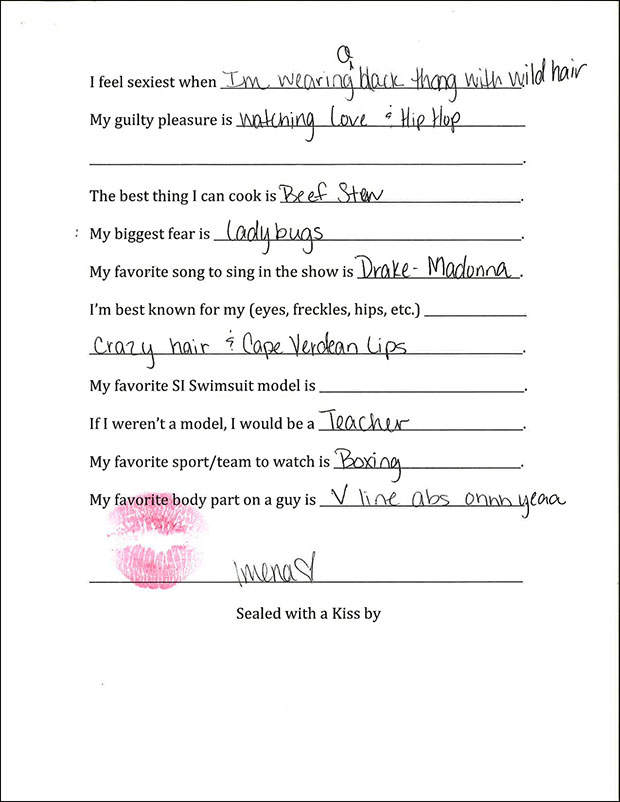 a
I feel sexiest when I'm wearing black thong with wild hair
My guilty pleasure is watching Love & Hip Hop
.
The best thing I can cook is Beef Stew.
: My biggest fear is ladybugs.
My favorite song to sing in the show is Drake - Madonna.
I'm best known for my (eyes, freckles, hips, etc.)
Crazy hair & Cape Verdean Lips.
My favorite SI Swimsuit model is .
If I weren't a model, I would be a Teacher.
My favorite sport/team to watch is Boxing.
My favorite body part on a guy is V line abs ohhh yeaa
Imena♡
Sealed with a Kiss by